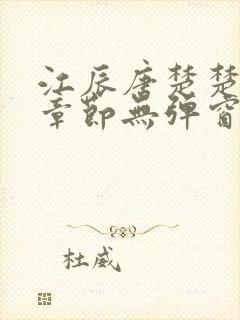 江辰唐楚楚
章節無彈窗
杜威